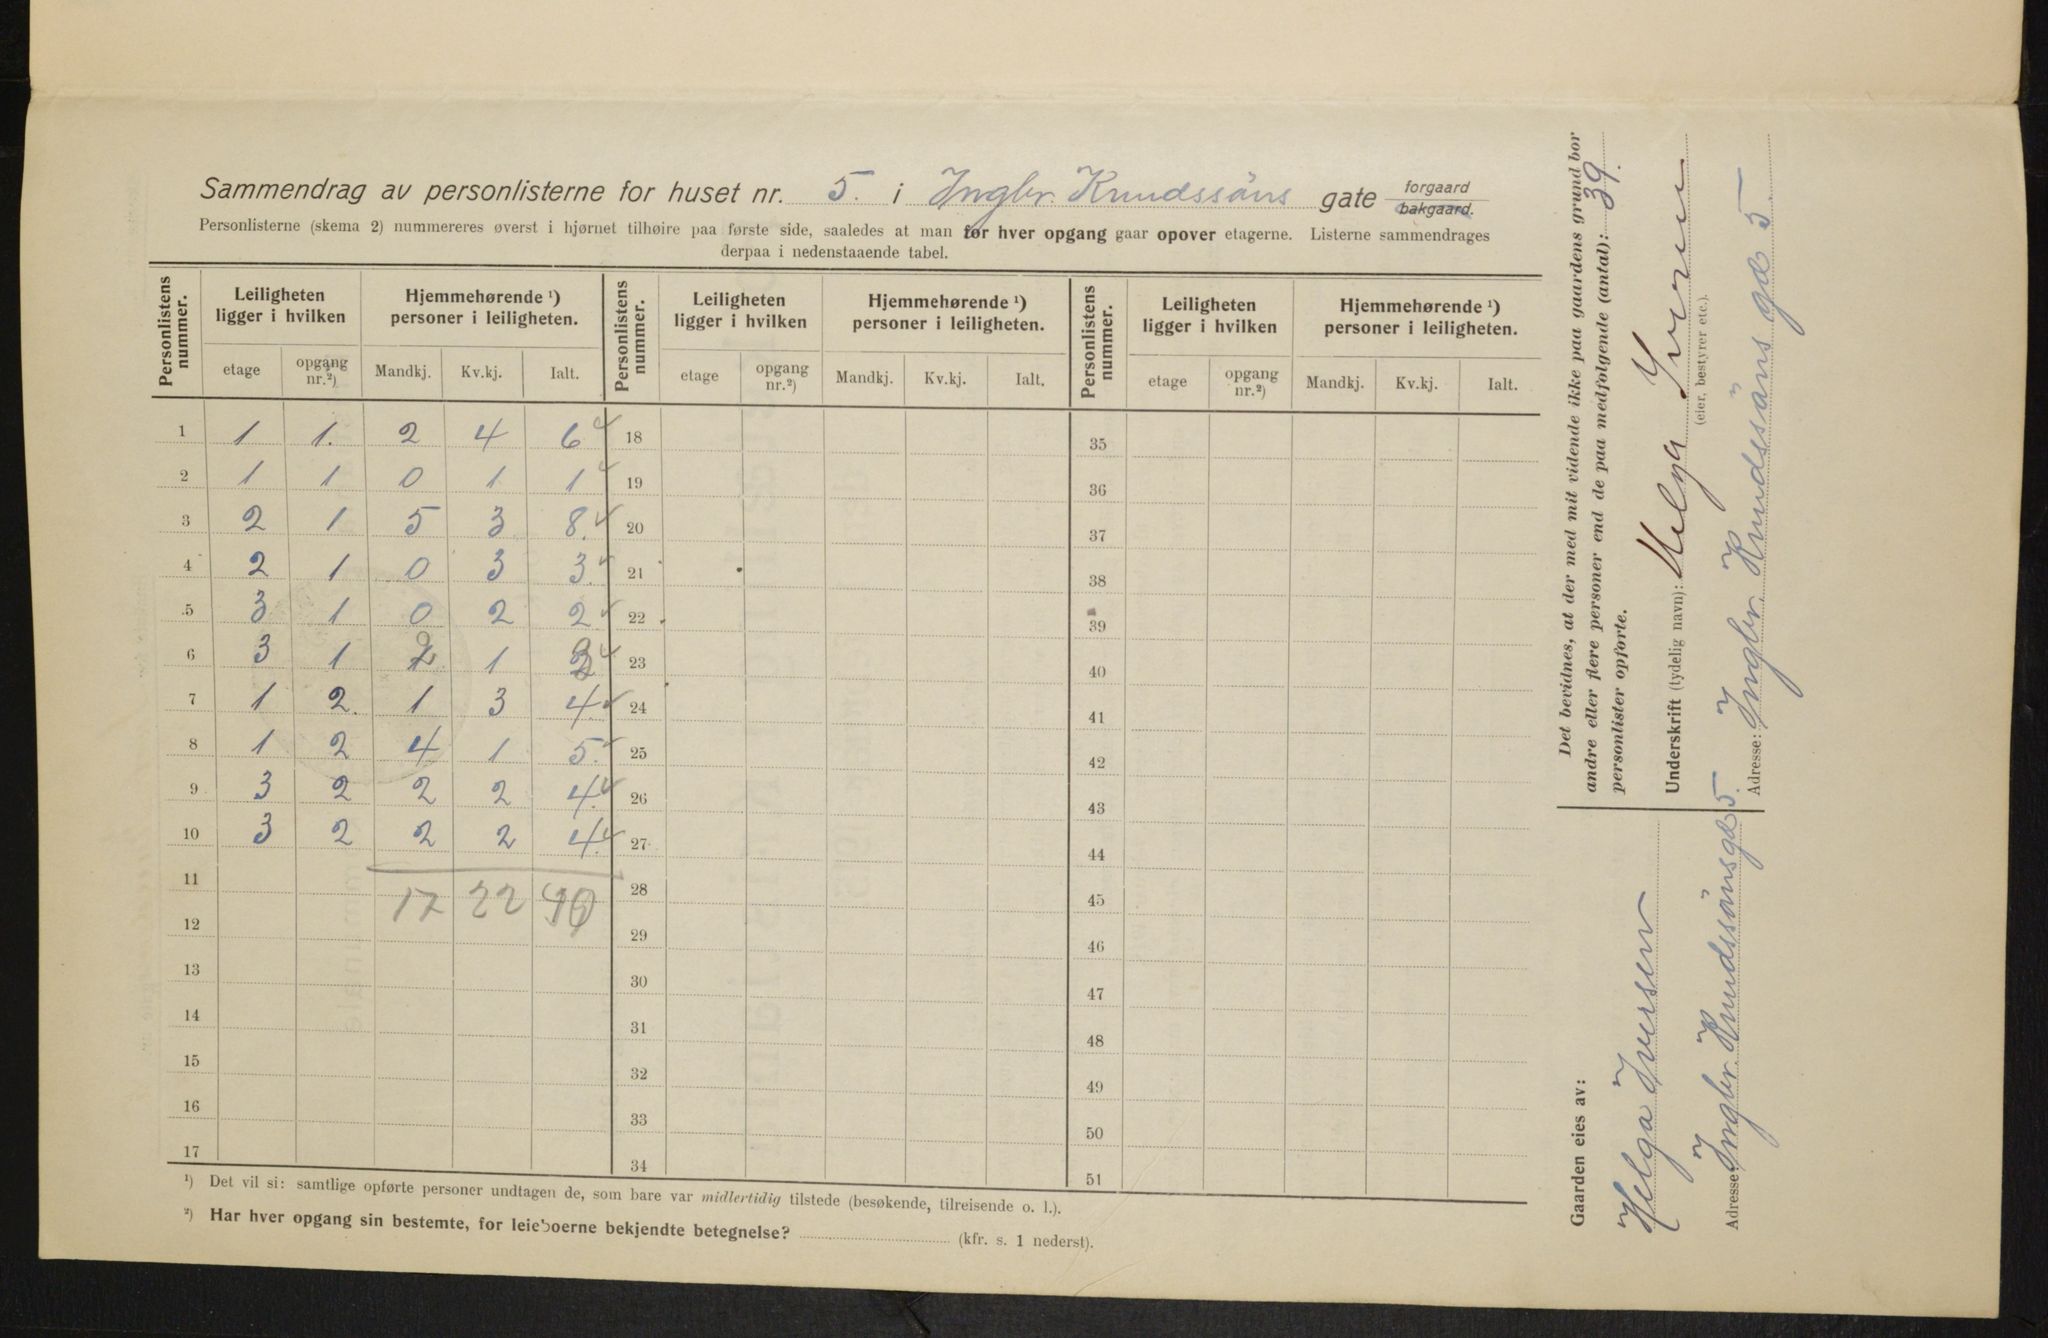 Sammendrag av personlisterne for huset nr. 5. i Ingbr. Knudssöns gate forgaard bakgaard.
Personlisterne (skema 2) nummereres øverst i hjørnet tilhøire paa første side, saaledes at man for hver opgang gaar opover etagerne. Listerne sammendrages
derpaa i nedenstaaende tabel.
Personlistens nummer. Leiligheten ligger i hvilken Hjemmehørende ¹) personer i leiligheten. Personlistens nummer. Leiligheten ligger i hvilken Hjemmehørende ¹) personer i leiligheten. Personlistens nummer. Leiligheten ligger i hvilken Hjemmehørende ¹) personer i leiligheten.
etage opgang nr.²) Mandkj. Kv.kj. Ialt. etage opgang nr.²) Mandkj. Kv.kj. Ialt. etage opgang nr.²) Mandkj. Kv.kj. Ialt.
1 1 1. 2 4 6 18 35
2 1 1 0 1 1 19 36
3 2 1 5 3 8. 20 37
4 2 1 0 3 3. 21 38
5 3 1 0 2 2 22 39
6 3 1 2 1 3 23 40
7 1 2. 1 3 4. 24 41
8 1 2 4 1 5. 25 42
9 3 2 2 2 4. 26 43
10 3 2 2 2 4. 27 44
17 22
11 28 45
12 29 46
13 30 47
14 31 48
15 32 49
16 33 50
17 34 51
¹) Det vil si: samtlige opførte personer undtagen de, som bare var midlertidig tilstede (besøkende, tilreisende o. l.).
²) Har hver opgang sin bestemte, for leieboerne bekjendte betegnelse? (kfr. s. 1 nederst).
Det bevidnes, at der med mit vidende ikke paa gaardens grund bor
andre eller flere personer end de paa medfølgende (antal): 39.
personlister opførte.
Underskrift (tydelig navn): Helga Iversen
(eier, bestyrer etc.).
Adresse: Ingbr. Knudssöns gd 5
Gaarden eies av:
Helga Iversen
Adresse: Ingbr. Knudssönsgd 5.